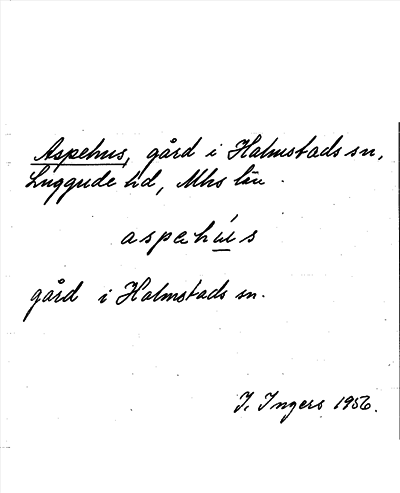 Aspehus, gård i Halmstads sn,
Luggude hd, Mhs län.
aspahús
gård i Halmstads sn.
I. Ingers 1956.